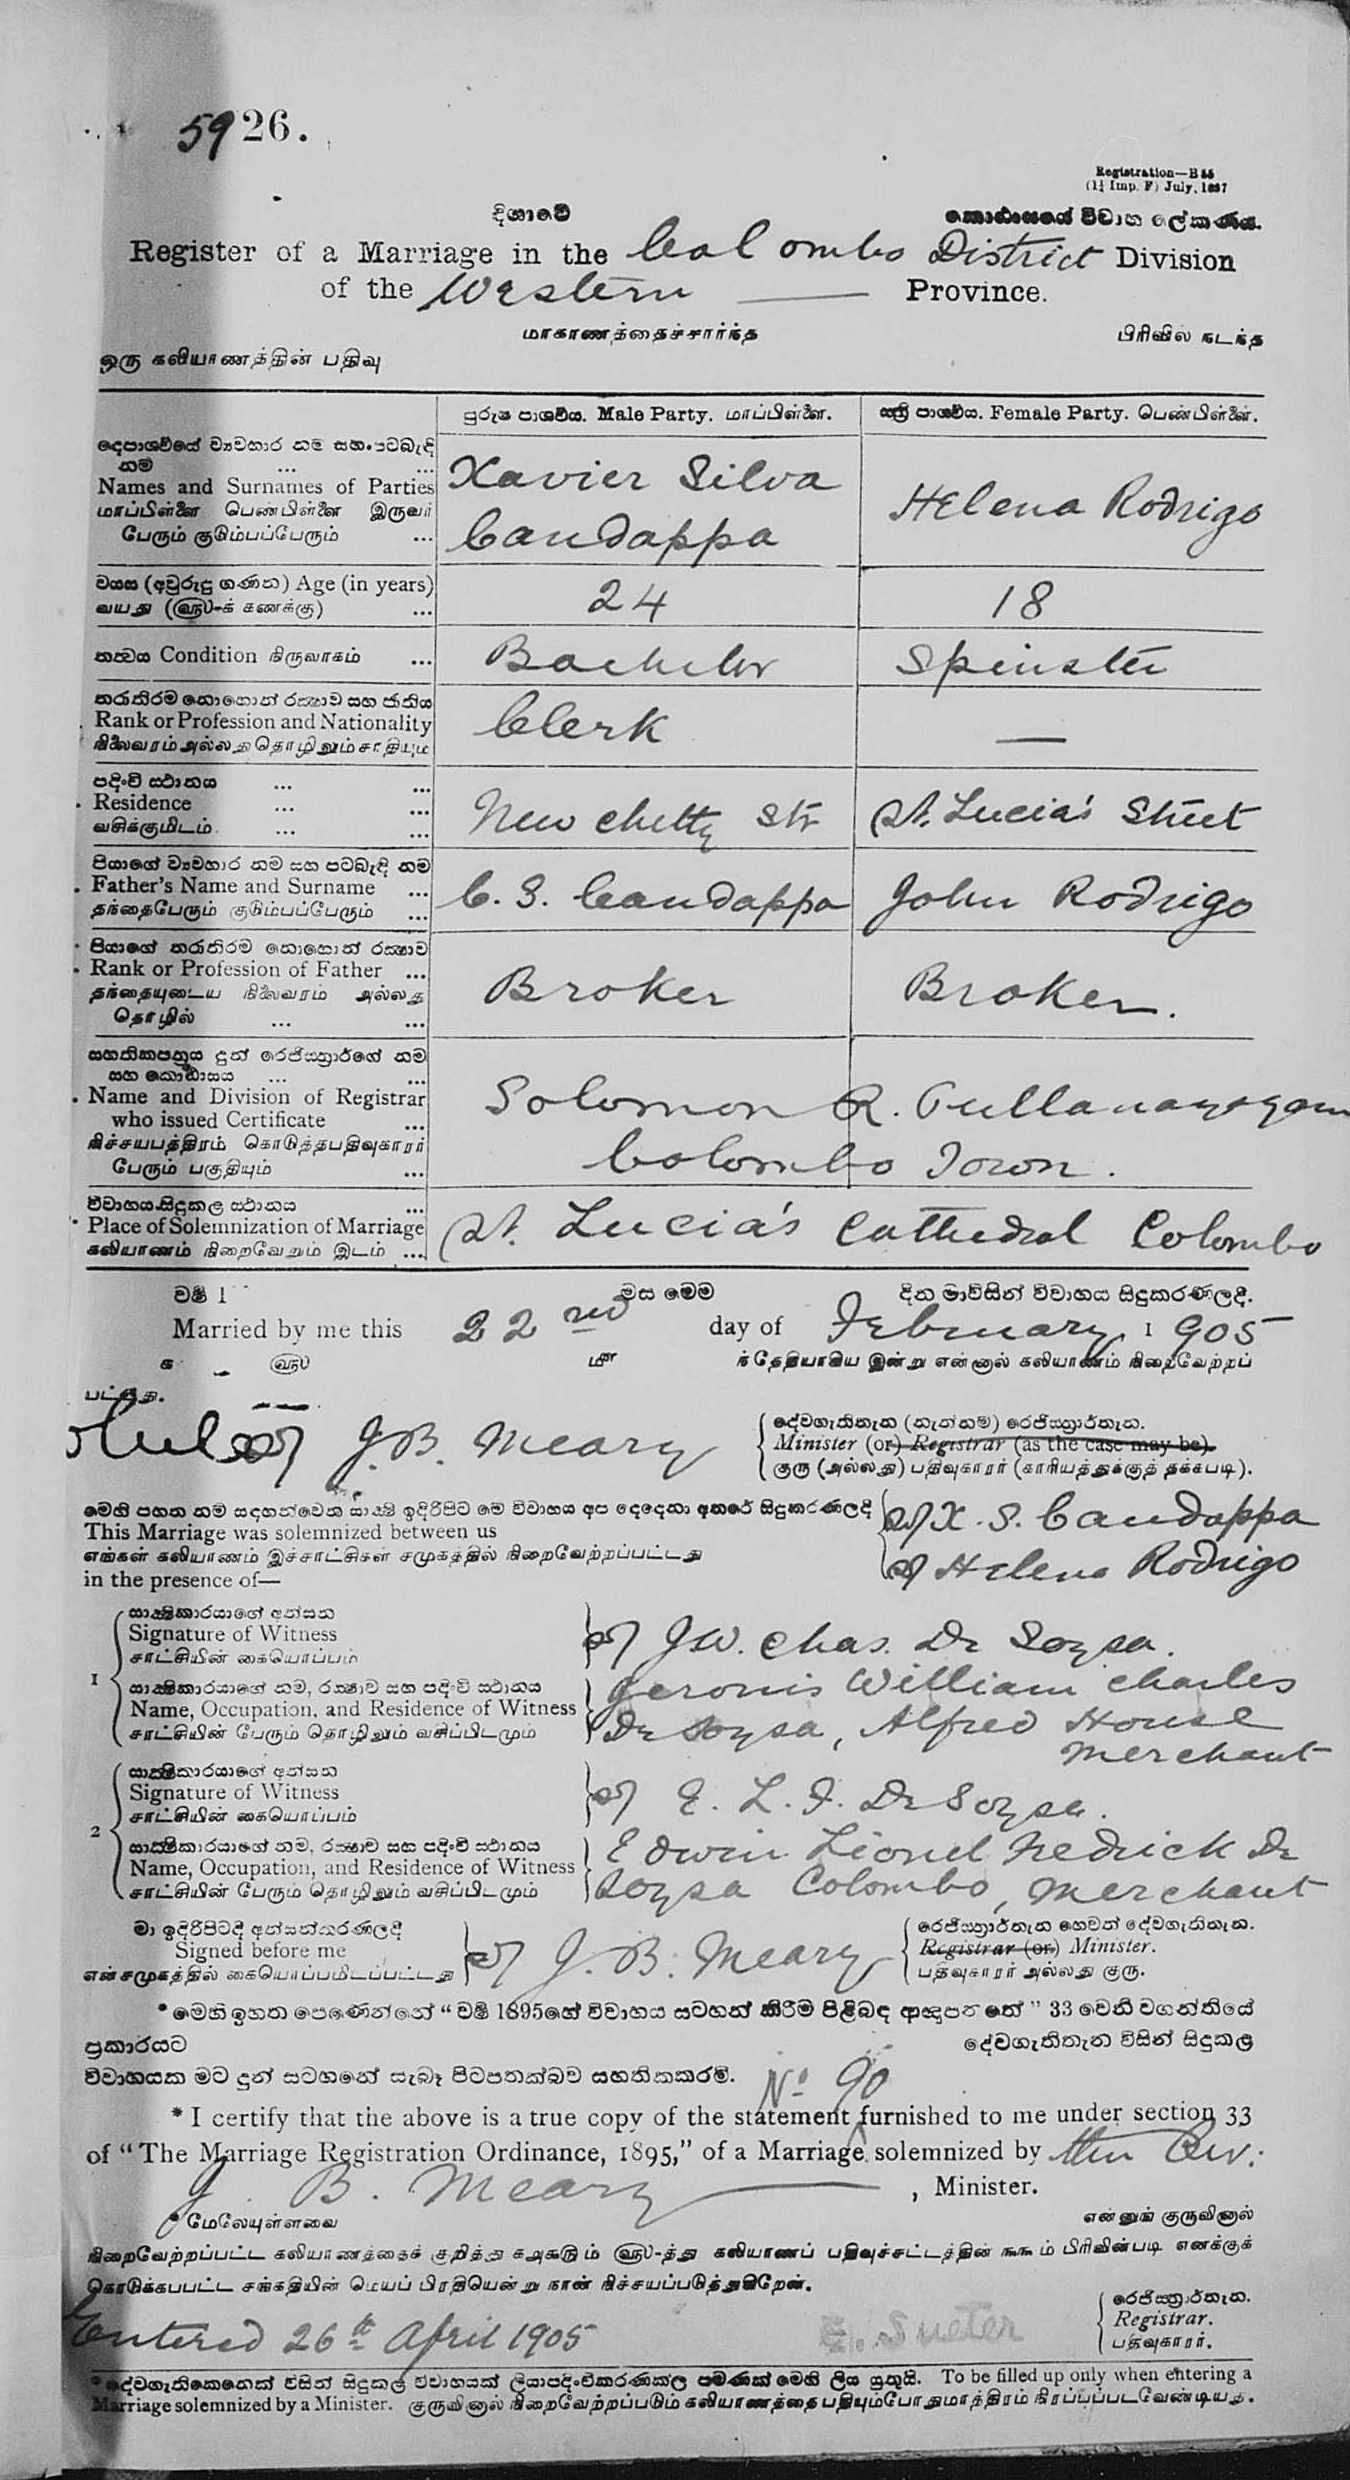 5926.
Registration—B 55
(1¼ Imp. F) July, 1897
දිසාවේ කොට්ඨාසයේ විවාහ ලේකණය.
Register of a Marriage in the Colombo District Division
of the Western — Province.
மாகாணத்தைச்சார்ந்த பிரிவில் நடந்த
ஒரு கலியாணத்தின் பதிவு
පුරුෂ පාශර්වය. Male Party. மாப்பிள்ளை.
ස්ත්‍රී පාශර්වය. Female Party. பெண்பிள்ளை.
දෙපාශර්වයේ ව්‍යවහාර නම සහ පටබැඳි
නම ... ...
Names and Surnames of Parties
மாப்பிள்ளை பெண்பிள்ளை இருவர்
பேரும் குடும்பப்பேரும் ...
Xavier Silva
Candappa
Helena Rodrigo
වයස (අවුරුදු ගණන) Age (in years)
வயது (௵-க் கணக்கு) ...
24
18
තත්වය Condition நிருவாகம் ...
Bachelor
Spinster
තරාතිරම නොහොත් රක්ෂාව සහ ජාතිය
Rank or Profession and Nationality
நிலைவரம் அல்லது தொழிலும் சாதியும்
Clerk
—
පදිංචි ස්ථානය ... ...
Residence ... ...
வசிக்குமிடம் ... ...
New Chetty Str
St. Lucia's Street
පියාගේ ව්‍යවහාර නම සහ පටබැඳි නම
Father's Name and Surname ...
தந்தைபேரும் குடும்பப்பேரும் ...
C. S. Candappa
John Rodrigo
පියාගේ තරාතිරම නොහොත් රක්ෂාව
Rank or Profession of Father ...
தந்தையுடைய நிலைவரம் அல்லது
தொழில் ... ...
Broker
Broker.
සහතිකපත්‍රය දුන් රෙජිස්ත්‍රාර්ගේ නම
සහ කොට්ඨාසය ... ...
Name and Division of Registrar
who issued Certificate ...
நிச்சயபத்திரம் கொடுத்தபதிவுகாரர்
பேரும் பகுதியும் ...
Solomon R. Pullanayagam
Colombo Town.
විවාහය සිදුකල ස්ථානය ...
Place of Solemnization of Marriage
கலியாணம் நிறைவேறும் இடம் ...
St. Lucia's Cathedral Colombo
වර්ෂ 1 මස මෙම දින මාවිසින් විවාහය සිදුකරණලදී.
Married by me this 22nd day of February 1905
௵ ந்தேதியாகிய இன்று என்னால் கலியாணம் நிறைவேற்றப்
பட்டது.
J. B. Meary
දේවගැතිතැන (නැත්නම්) රෙජිස්ත්‍රාර්තැන.
Minister (or) Registrar (as the case may be).
குரு (அல்லது) பதிவுகாரர் (காரியத்துக்குத் தக்கபடி).
මෙහි පහත නම් සඳහන්වෙන සාක්ෂි ඉදිරිපිට මේ විවාහය අප දෙදෙනා අතරේ සිදුකරණලදි
This Marriage was solemnized between us
எங்கள் கலியாணம் இச்சாட்சிகள் சமுகத்தில் நிறைவேற்றப்பட்டது
in the presence of—
X. S. Candappa
Helena Rodrigo
1
සාක්ෂිකාරයාගේ අත්සන
Signature of Witness
சாட்சியின் கையொப்பம்
J W. Chas. De Soysa.
සාක්ෂිකාරයාගේ නම, රක්ෂාව සහ පදිංචි ස්ථානය
Name, Occupation, and Residence of Witness
சாட்சியின் பேரும் தொழிலும் வசிப்பிடமும்
Jeronis William Charles
De Soysa, Alfred House
Merchant
2
සාක්ෂිකාරයාගේ අත්සන
Signature of Witness
சாட்சியின் கையொப்பம்
E. L. F. De Soysa.
සාක්ෂිකාරයාගේ නම, රක්ෂාව සහ පදිංචි ස්ථානය
Name, Occupation, and Residence of Witness
சாட்சியின் பேரும் தொழிலும் வசிப்பிடமும்
Edwin Lionel Fredrick De
Soysa Colombo, Merchant
මා ඉදිරිපිටදී අත්සන්කරණලදී
Signed before me
என் சமுகத்தில் கையொப்பமிடப்பட்டது
J. B. Meary
රෙජිස්ත්‍රාර්තැන හෙවත් දේවගැතිතැන.
Registrar (or) Minister.
பதிவுகாரர் அல்லது குரு.
* මෙහි ඉහත පෙණෙන්නේ “ වර්ෂ 1895හේ විවාහය සටහන් කිරීම පිළිබඳ ආඥාපනතේ ” 33 වෙනි වගන්තියේ
ප්‍රකාරයට දේවගැතිතැන විසින් සිදුකල
විවාහයක මට දුන් සටහනේ සැබෑ පිටපතක්බව සහතිකකරමි.
No 90
* I certify that the above is a true copy of the statement furnished to me under section 33
of “The Marriage Registration Ordinance, 1895,” of a Marriage ^ solemnized by the Rev:
J. B. Meary —, Minister.
* மேலேயுள்ளவை என்னுங் குருவினால்
நிறைவேற்றப்பட்ட கலியாணத்தைக் குறித்து ௧௮௯௫ம் ௵-த்து கலியாணப் பதிவுச்சட்டத்தின் ௩௩ம் பிரிவின்படி எனக்குக்
கொடுக்கப்பட்ட சங்கதியின் மெய்ப் பிரதியென்று நான் நிச்சயப்படுத்துகிறேன்.
Entered 26th April 1905
රෙජිස්ත්‍රාර්තැන.
Registrar.
பதிவுகாரர்.
* දේවගැතිකෙනෙක් විසින් සිදුකල විවාහයක් ලියාපදිංචිකරණකල පමණක් මෙහි ලිය යුතුයි. To be filled up only when entering a
Marriage solemnized by a Minister. குருவினால் நிறைவேற்றப்படும் கலியாணத்தை பதியும்போது மாத்திரம் நிரப்பப்படவேண்டியது.